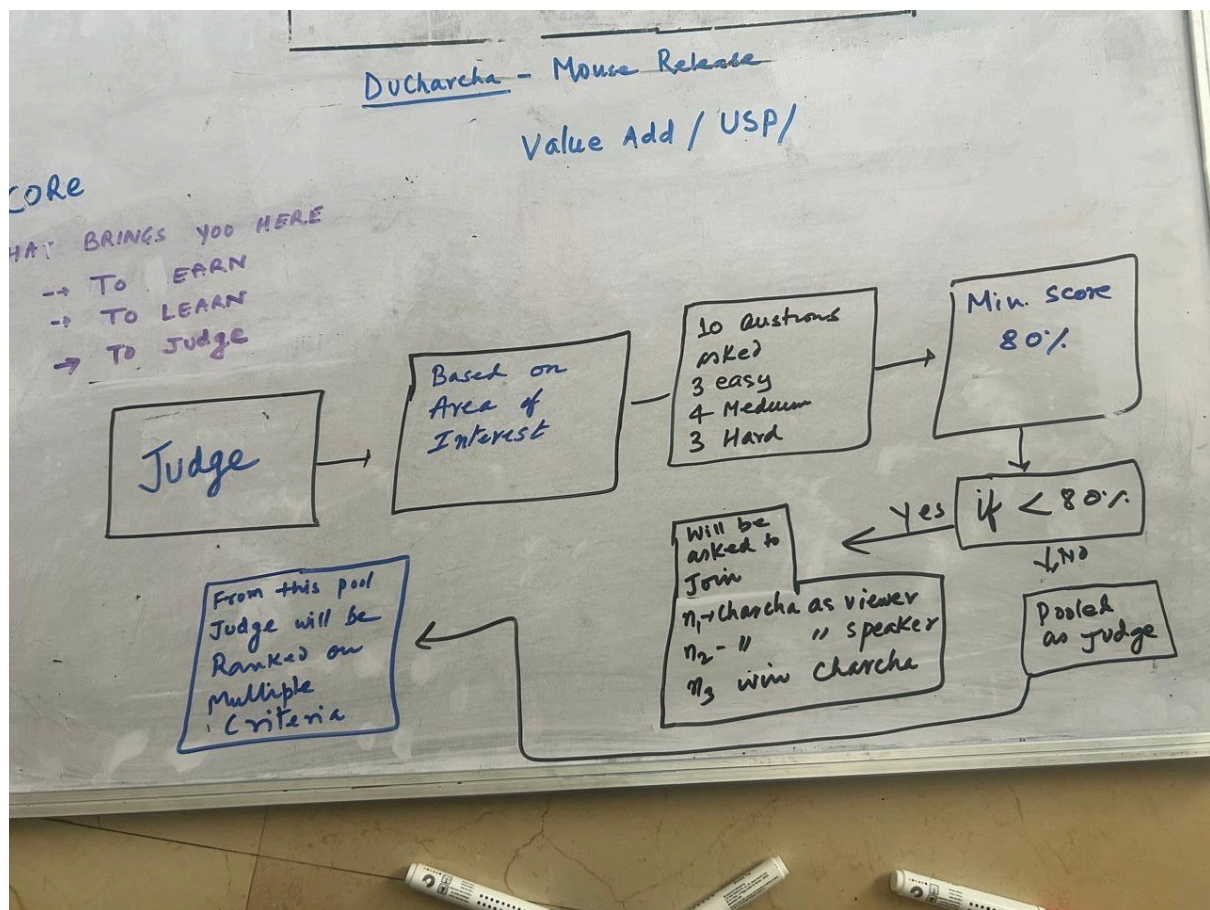 DuCharcha - Mouse Release
Value Add / USP/
CORe
HAT BRINGS YOO HERE
→ TO EARN
→ TO LEARN
→ TO JUdge
Judge
Based on
Area of
Interest
10 Questions
asked
3 easy
4 Medium
3 Hard
Min. Score
80%
if < 80%
Yes
NO
Will be
asked to
Join
n₁→ Charcha as viewer
n₂ - " " speaker
n₃ win Charcha
Pooled
as Judge
From this pool
Judge will be
Ranked on
Multiple
Criteria